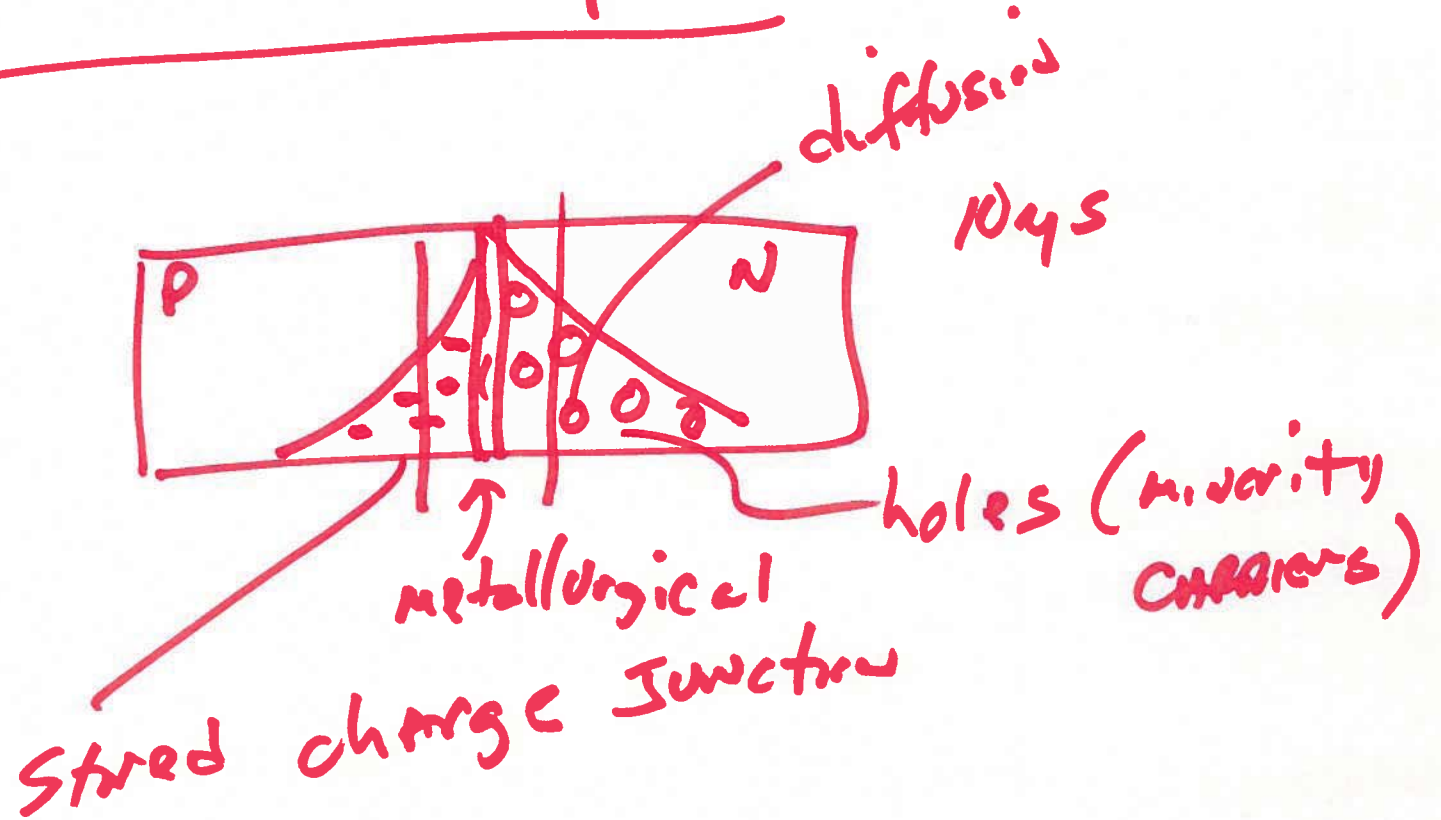 diffusion
10ns
P
N
holes (minority
carriers)
metallurgical
Junction
Stored charge